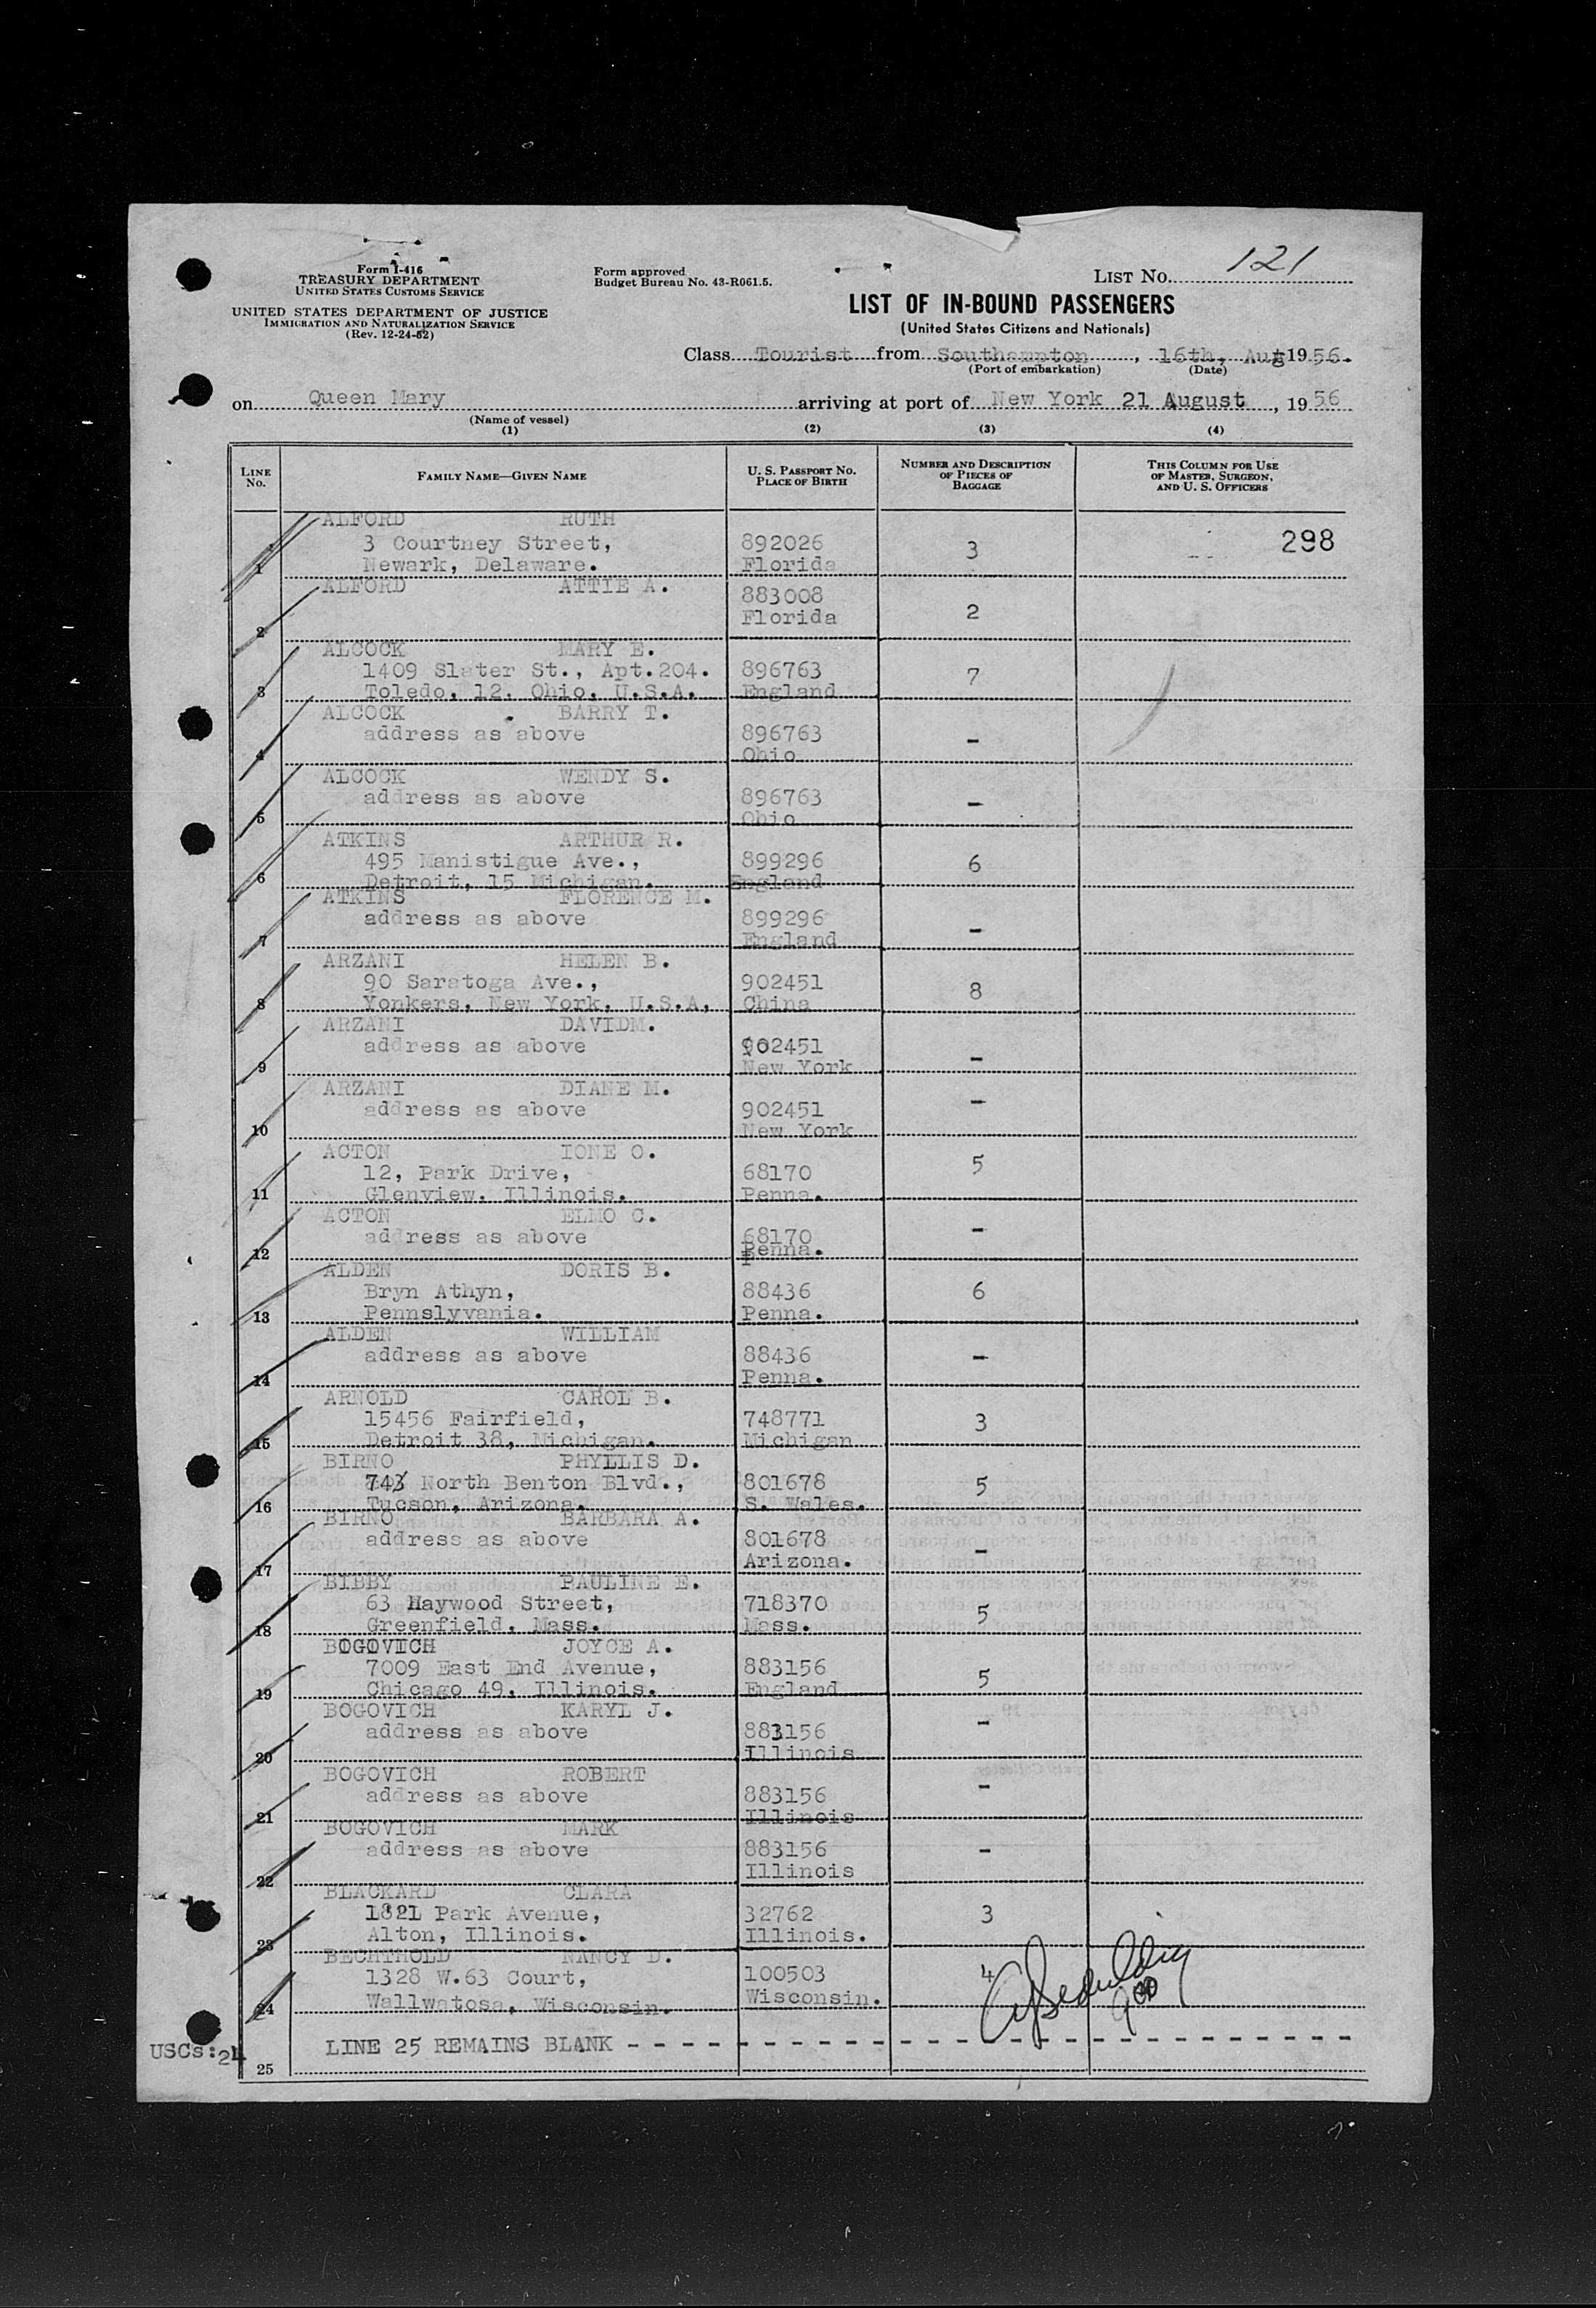 Form I-416
TREASURY DEPARTMENT
UNITED STATES CUSTOMS SERVICE
UNITED STATES DEPARTMENT OF JUSTICE
IMMIGRATION AND NATURALIZATION SERVICE
(Rev. 12-24-52)
Form approved
Budget Bureau No. 43-R061.5.
LIST NO. 121
LIST OF IN-BOUND PASSENGERS
(United States Citizens and Nationals)
Class Tourist from Southampton, 16th, Aug 1956.
(Port of embarkation) (Date)
on Queen Mary arriving at port of New York 21 August, 1956
(Name of vessel)
(1) (2) (3) (4)
LINE No.
FAMILY NAME—GIVEN NAME
U. S. PASSPORT NO.
PLACE OF BIRTH
NUMBER AND DESCRIPTION
OF PIECES OF
BAGGAGE
THIS COLUMN FOR USE
OF MASTER, SURGEON,
AND U. S. OFFICERS
ALFORD RUTH
3 Courtney Street, 892026 3 298
1 Newark, Delaware. Florida
ALFORD ATTIE A. 883008
Florida 2
2
ALCOCK MARY E.
1409 Slater St., Apt.204. 896763 7
3 Toledo, 12, Ohio, U.S.A. England
ALCOCK BARRY T.
address as above 896763 -
4 Ohio
ALCOCK WENDY S.
address as above 896763 -
5 Ohio
ATKINS ARTHUR R.
495 Manistigue Ave., 899296 6
6 Detroit, 15 Michigan. England
ATKINS FLORENCE M.
address as above 899296 -
7 England
ARZANI HELEN B.
90 Saratoga Ave., 902451 8
8 Yonkers, New York, U.S.A. China
ARZANI DAVIDM.
address as above 902451 -
9 New York
ARZANI DIANE M.
address as above 902451 -
10 New York
ACTON IONE O.
12, Park Drive, 68170 5
11 Glenview, Illinois. Penna.
ACTON ELMO C.
address as above 68170 -
12 Penna.
ALDEN DORIS B.
Bryn Athyn, 88436 6
13 Pennslyvania. Penna.
ALDEN WILLIAM
address as above 88436 -
14 Penna.
ARNOLD CAROL B.
15456 Fairfield, 748771 3
15 Detroit 38, Michigan. Michigan
BIRNO PHYLLIS D.
743 North Benton Blvd., 801678 5
16 Tucson, Arizona. S. Wales.
BIRNO BARBARA A.
address as above 801678 -
17 Arizona.
BIBBY PAULINE E.
63 Haywood Street, 718370 5
18 Greenfield, Mass. Mass.
BOGOVICH JOYCE A.
7009 East End Avenue, 883156 5
19 Chicago 49, Illinois. England
BOGOVICH KARYL J.
address as above 883156 -
20 Illinois
BOGOVICH ROBERT
address as above 883156 -
21 Illinois
BOGOVICH MARK
address as above 883156 -
22 Illinois
BLACKARD CLARA
1821 Park Avenue, 32762 3
23 Alton, Illinois. Illinois.
BECHTHOLD NANCY D.
1328 W.63 Court, 100503 4
24 Wallwatosa, Wisconsin. Wisconsin.
USCs:24 LINE 25 REMAINS BLANK - - - - - - - - - - - - - - - - - - - - - - -
25